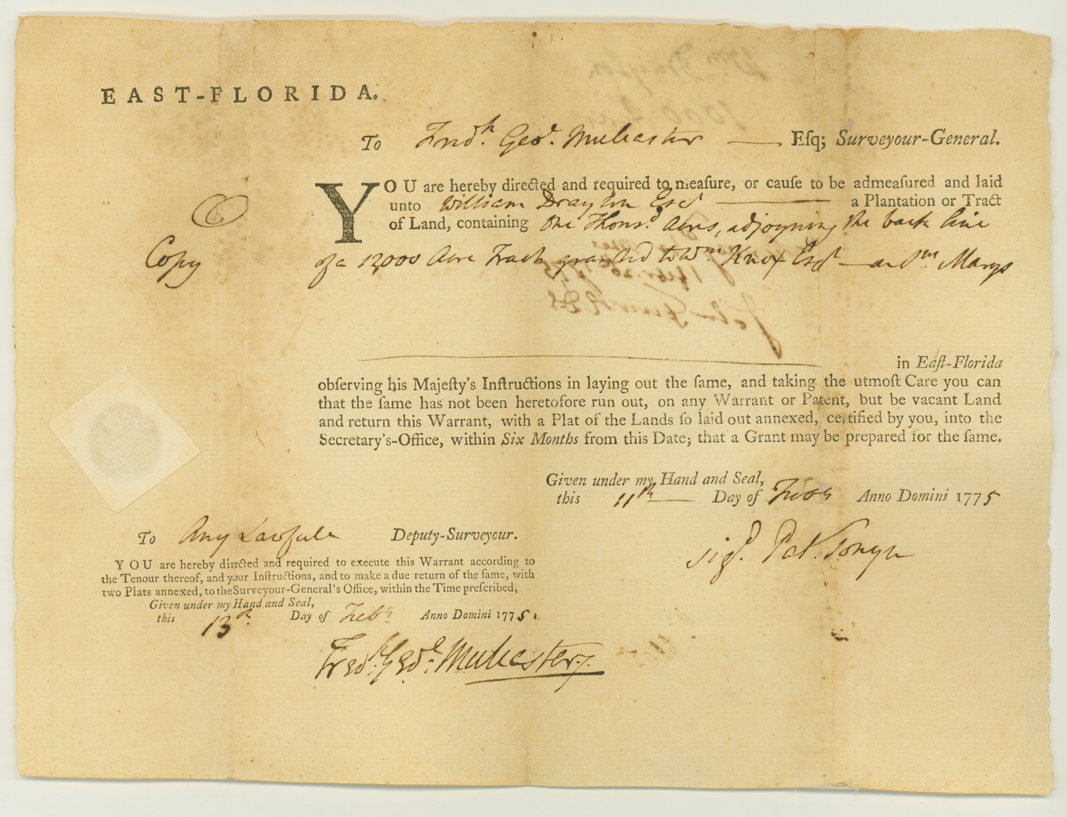 EAST-FLORIDA.
To Fredk. Geoe. Mulcaster — Esq; Surveyour-General.
YOU are hereby directed and required to measure, or cause to be admeasured and laid
unto William Drayton Esqr — a Plantation or Tract
of Land, containing One Thousd. Acres, adjoyning the back line
Copy
of a 12,000 Acre Tract granted to Wm Knox Esqr — on St. Marys
in East-Florida
observing his Majesty's Instructions in laying out the same, and taking the utmost Care you can
that the same has not been heretofore run out, on any Warrant or Patent, but be vacant Land
and return this Warrant, with a Plat of the Lands so laid out annexed, certified by you, into the
Secretary's-Office, within Six Months from this Date; that a Grant may be prepared for the same.
Given under my Hand and Seal,
this 11th Day of Anno Domini 1775
sigd. Pat. Tonyn
To Any Lawfule Deputy-Surveyour.
YOU are hereby directed and required to execute this Warrant according to
the Tenour thereof, and your Instructions, and to make a due return of the same, with
two Plats annexed, to the Surveyour-General's Office, within the Time prescribed,
Given under my Hand and Seal,
this 13th Day of Feby. Anno Domini 1775.
Fredk. Geoe. Mulcaster